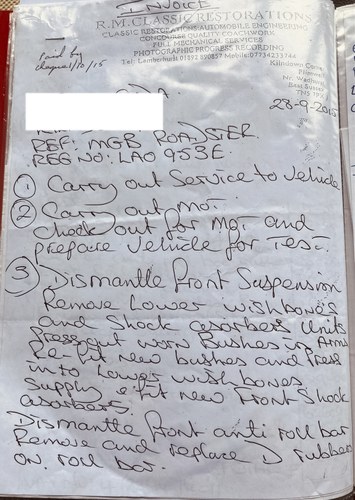 INVOICE
R.M.CLASSIC RESTORATIONS
CLASSIC RESTORATION AUTOMOBILE ENGINEERING
CONCOURSE QUALITY COACHWORK
FULL MECHANICAL SERVICES
PHOTOGRAPHIC PROGRESS RECORDING
Tel: Lamberhurst 01892 890857 Mobile:07734233744
Paid by
East Sussex
28-9-2015
REF: MGB ROADSTER.
REG NO: LAO 953E.
1 Carry out Service to vehicle
2 Carry out MOT.
Check out for MOT and
prepare vehicle for Test.
3 Dismantle Front Suspension
Remove Lower wishbones
and Shock absorbers Units
Press out worn Bushes in Arms
Re-fit new bushes and Press
in to Lower wish bones
Supply & fit new Front Shock
absorbers.
Dismantle Front anti roll bar
Remove and replace D rubbers
on roll bar.